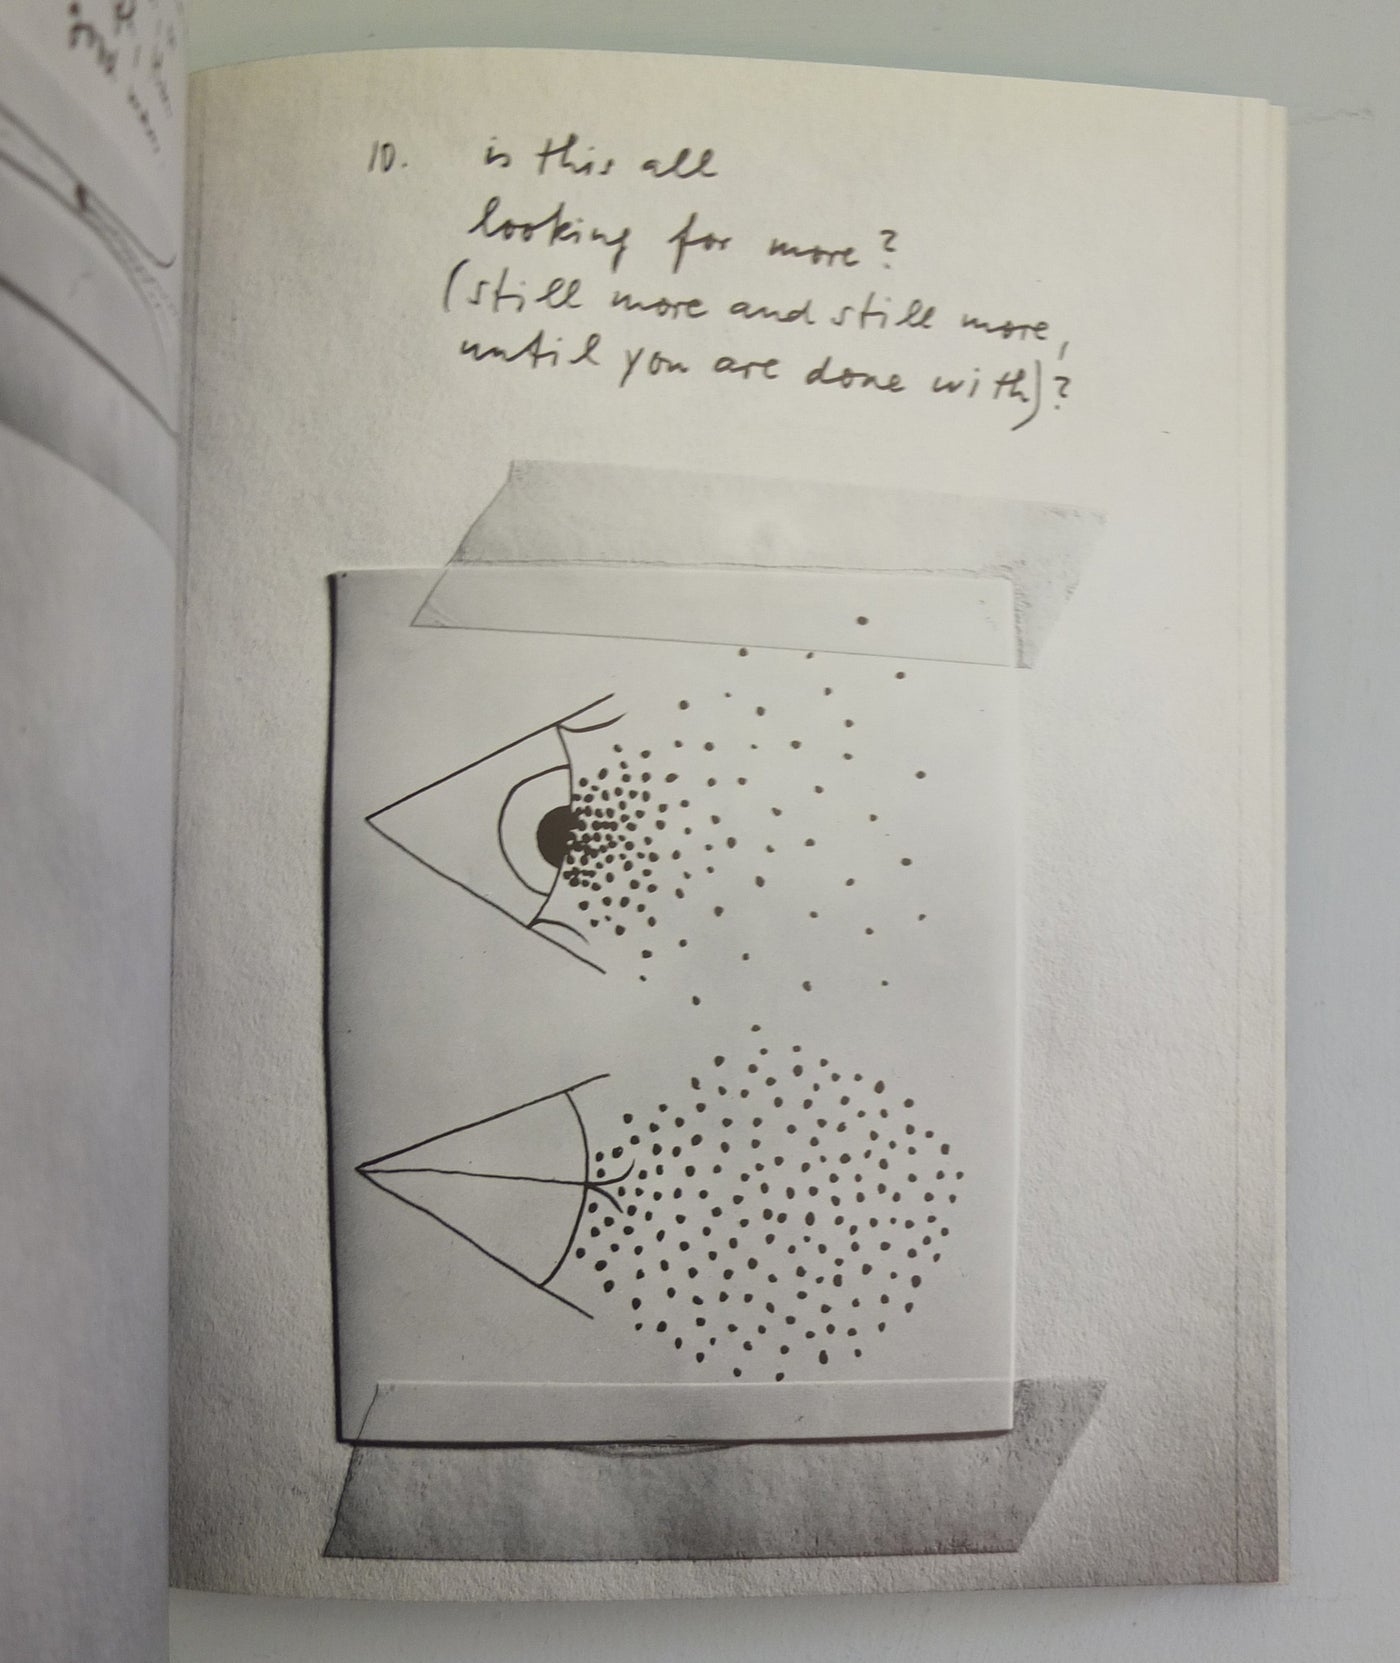 10. is this all
looking for more?
(still more and still more,
until you are done with)?